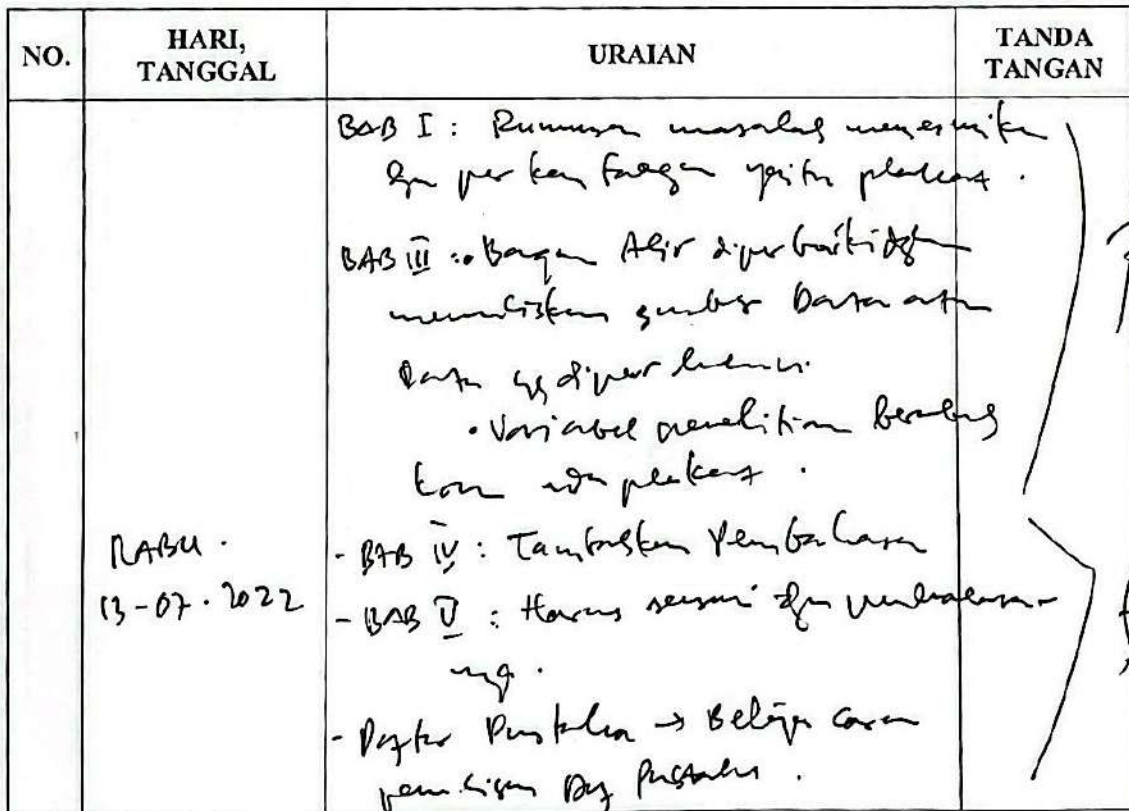 NO. HARI, TANGGAL URAIAN TANDA TANGAN
BAB I : Rumusan masalah menyesuaikan
dgn per yaitu plakat .
BAB III : • Bagan Alir diperbaiki dgn
menuliskan sumber Data atau
Data yg diperlukan.
• Variabel penelitian
plakat .
RABU . - BAB IV : Tambahkan Pembahasan
13-07-2022 - BAB V : Harus sesuai dgn pembahasan-
- Daftar Pustaka → Belajar cara
penulisan Daf Pustaka .